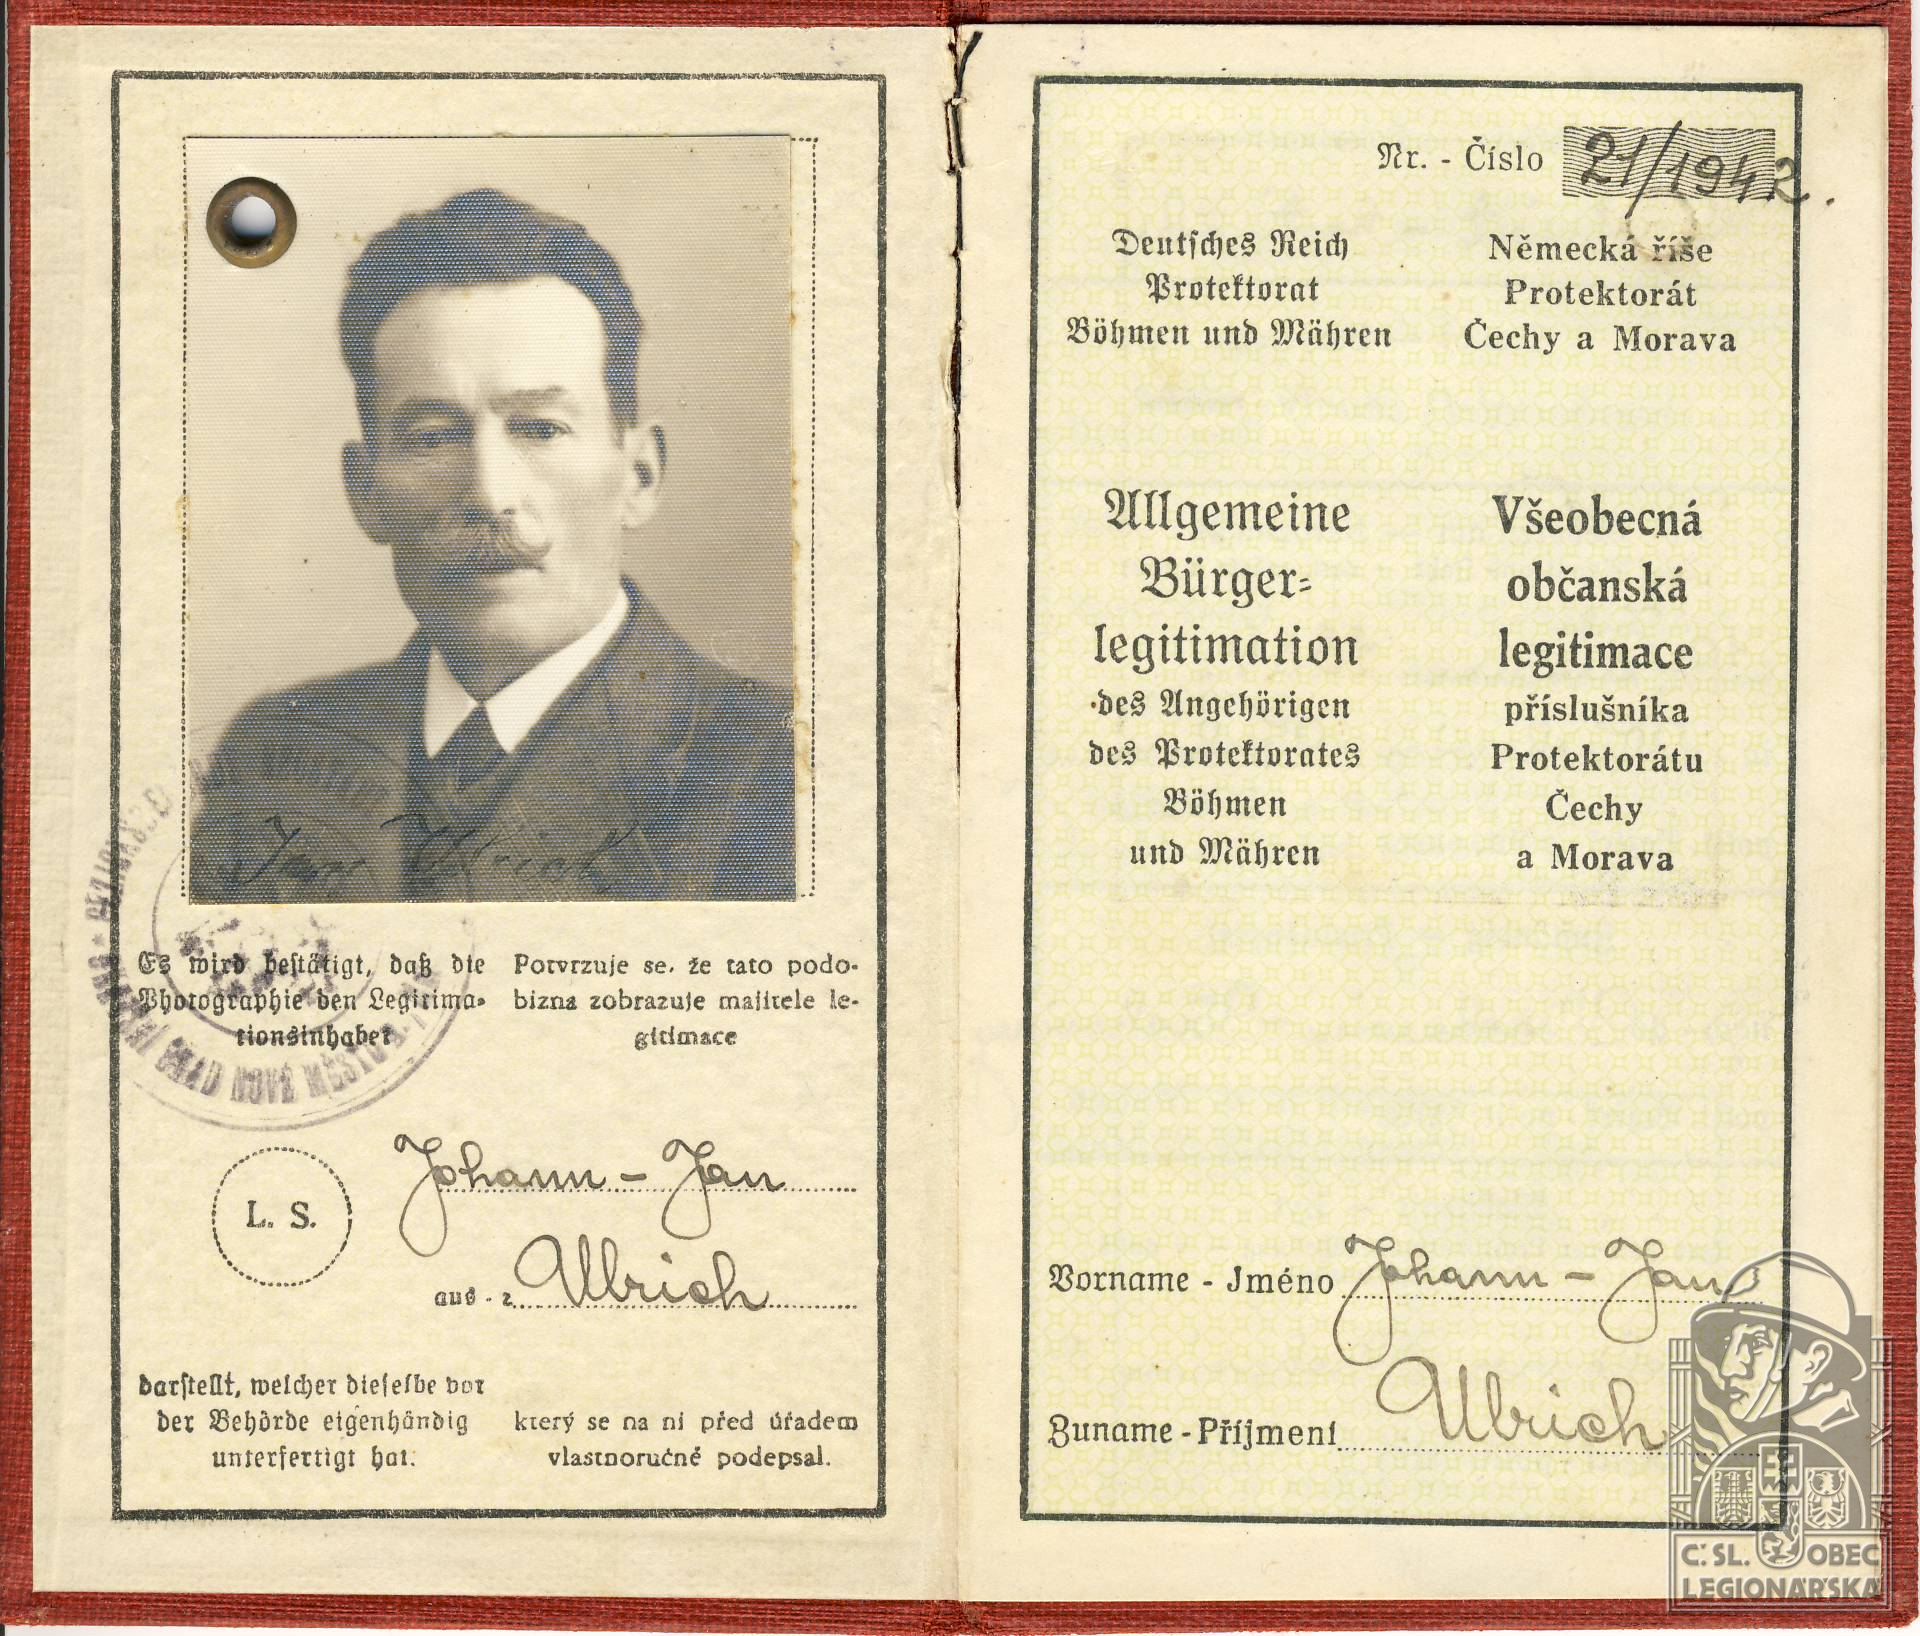 Jan Ulrich
Es wird bestätigt, daß die
Photographie den Legitima-
tionsinhaber
Potvrzuje se, že tato podo-
bizna zobrazuje majitele le-
gitimace
ÚŘAD NOVÉ MĚSTO
L. S.
Johann - Jan
aus - z Ulrich
darstellt, welcher dieselbe vor
der Behörde eigenhändig
unterfertigt hat.
který se na ni před úřadem
vlastnoručně podepsal.
Nr. - Číslo 21/1942.
Deutsches Reich
Protektorat
Böhmen und Mähren
Německá říše
Protektorát
Čechy a Morava
Allgemeine
Bürger-
legitimation
des Angehörigen
des Protektorates
Böhmen
und Mähren
Všeobecná
občanská
legitimace
příslušníka
Protektorátu
Čechy
a Morava
Vorname - Jméno Johann - Jan
Zuname - Příjmení Ulrich
Č SL. OBEC
LEGIONÁŘSKÁ